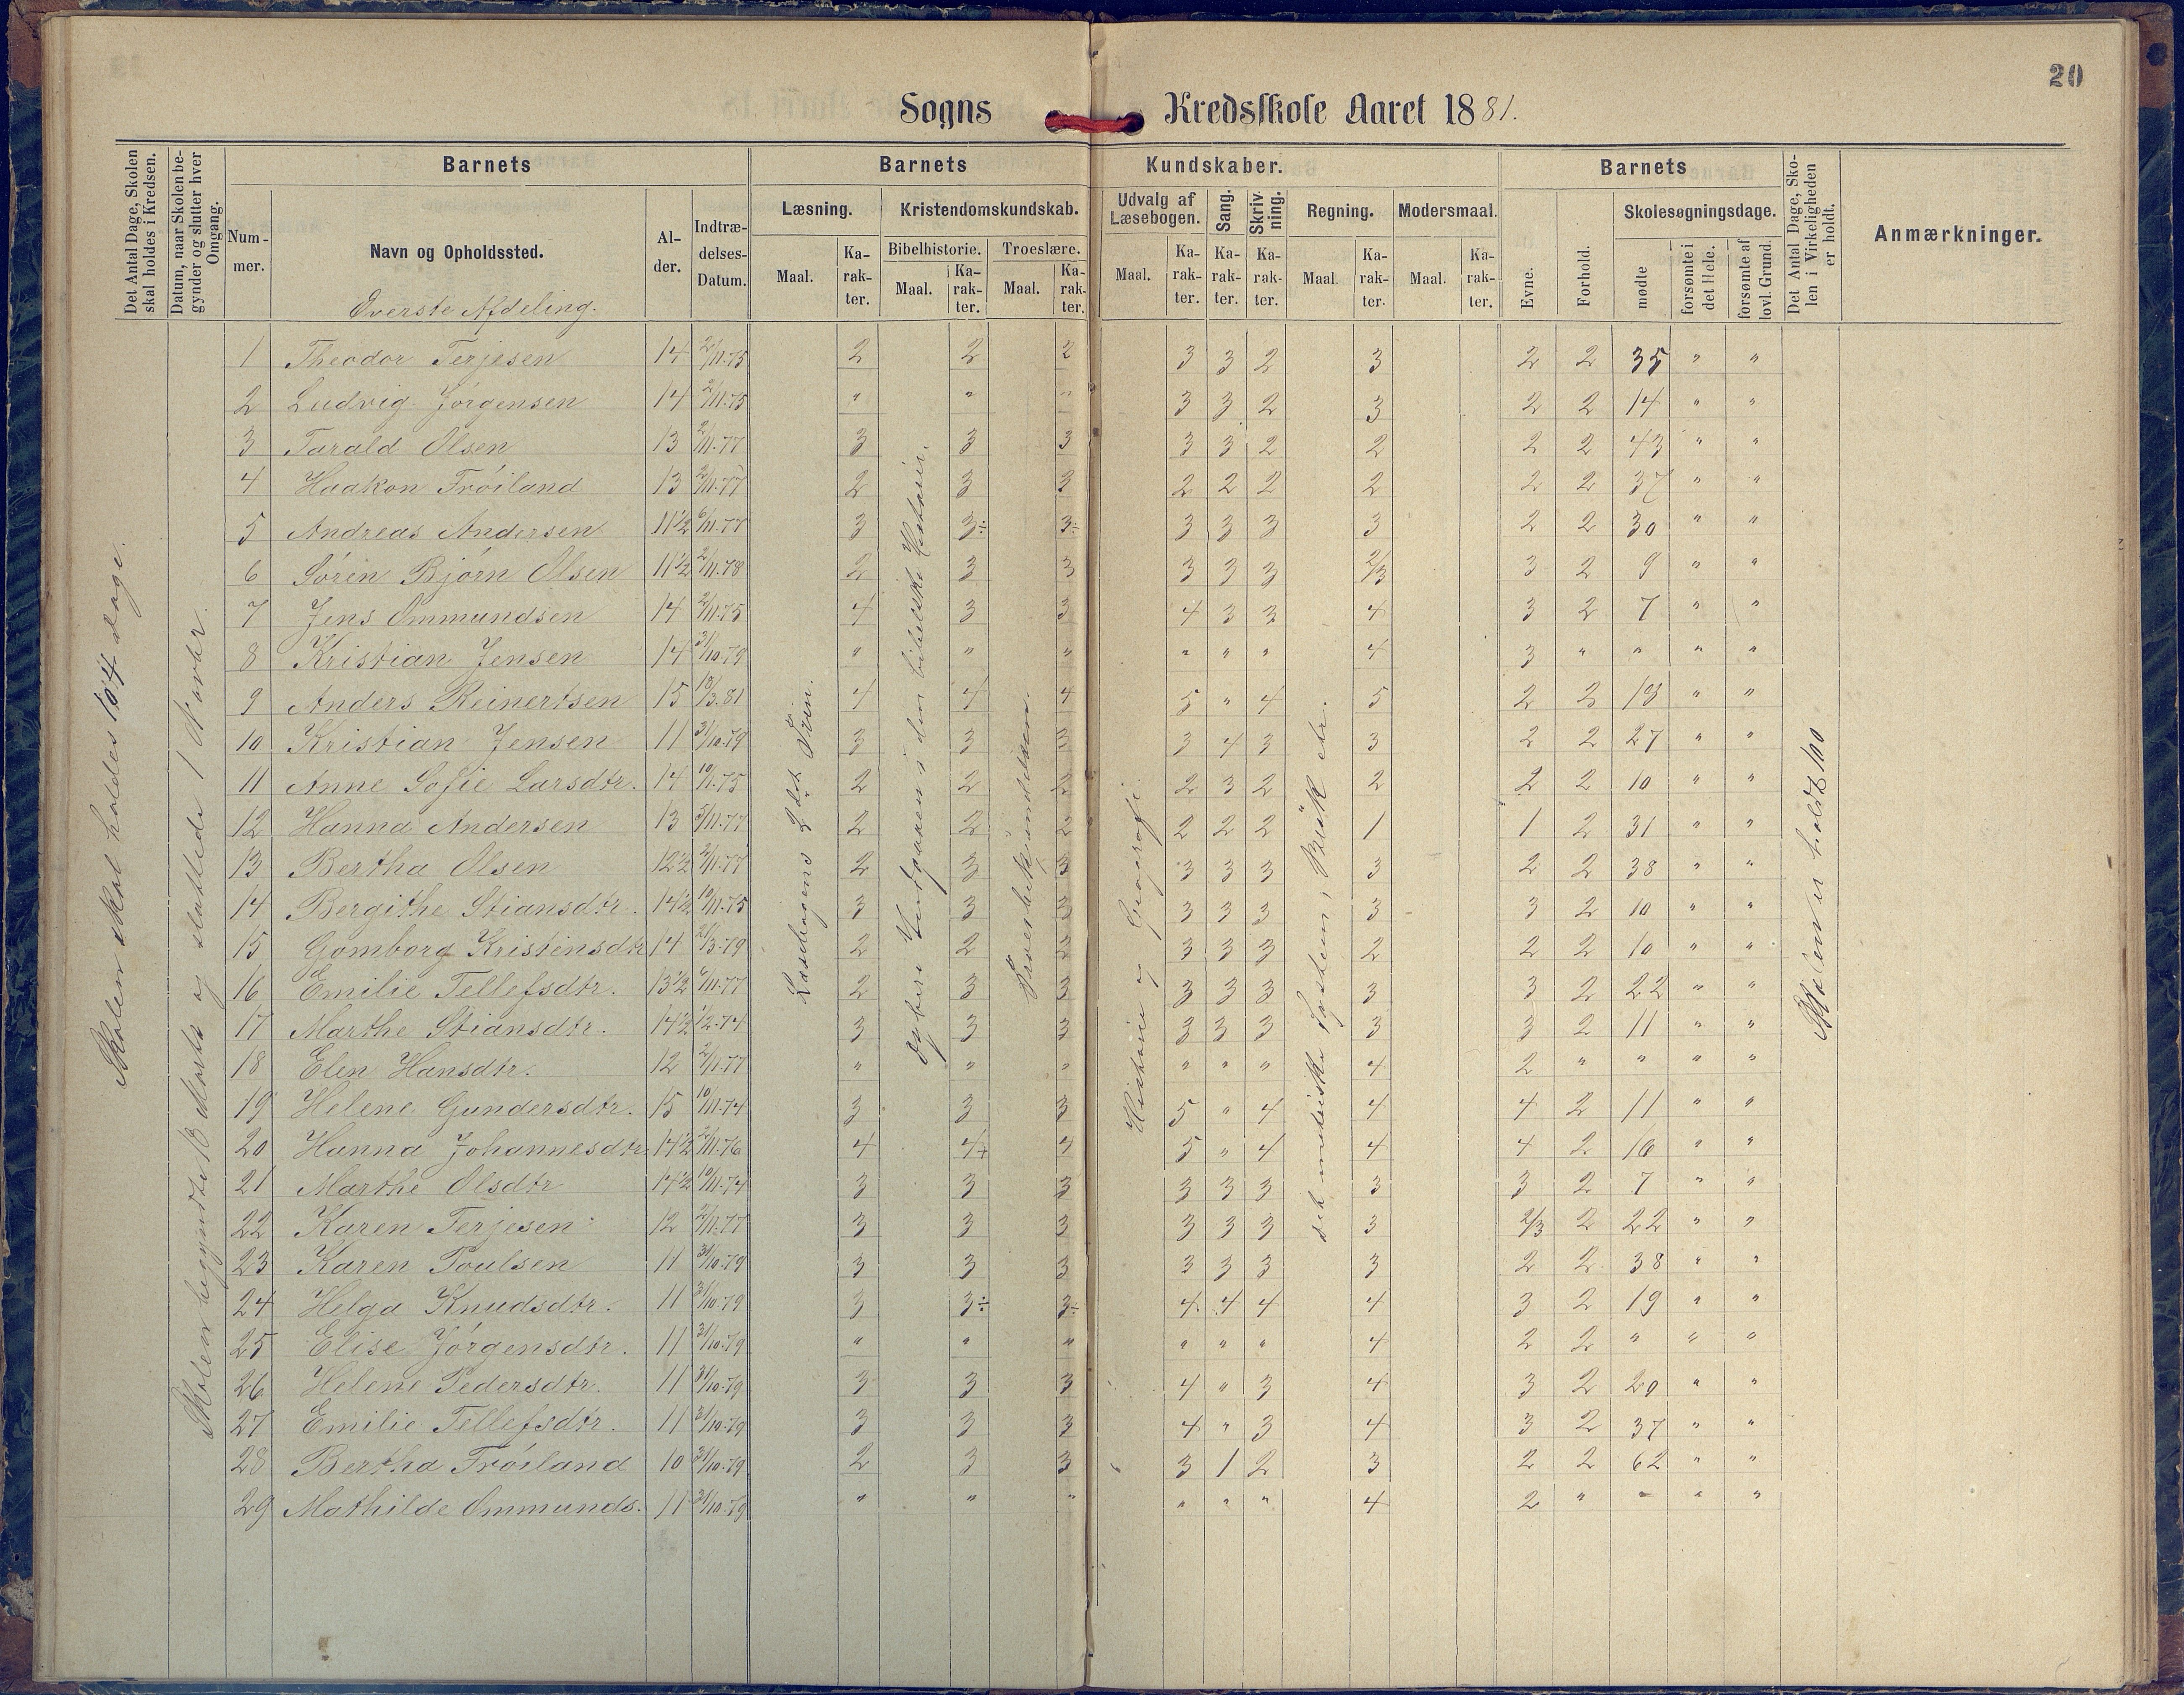 20
Sogns Kredsskole Aaret 1881.
Det Antal Dage, Skolen skal holdes i Kredsen.
Datum, naar Skolen begynder og slutter hver Omgang.
Barnets
Nummer.
Navn og Opholdssted.
Alder.
Indtrædelses-Datum.
Barnets Kundskaber.
Læsning.
Maal.
Karakter.
Kristendomskundskab.
Bibelhistorie.
Maal.
Karakter.
Troeslære.
Maal.
Karakter.
Udvalg af Læsebogen.
Maal.
Karakter.
Sang.
Karakter.
Skrivning.
Karakter.
Regning.
Maal.
Karakter.
Modersmaal.
Maal.
Karakter.
Barnets
Evne.
Forhold.
Skolesøgningsdage.
mødte
forsømte i det Hele.
forsømte af lovl. Grund.
Det Antal Dage, Skolen i Virkeligheden er holdt.
Anmærkninger.
Øverste Afdeling.
Skolen skal holdes 104 dage.
Skolen begyndte 18 Marts og sluttede 1 Novbr.
Læsebogens 2det Trin.
i den bibelske Historie.
Historie og Geografi.
Skolen er holdt 110
1 Theodor Terjesen 14 2/11.75 2 2 2 3 3 2 3 2 2 35 " "
2 Ludvig Jørgensen 14 2/11.75 " " " 3 3 2 3 2 2 14 " "
3 Tarald Olsen 13 2/11.77 3 3 3 3 3 2 2 2 2 43 " "
4 Haakon Frøiland 13 2/11.77 2 3 3 2 2 2 2 2 2 37 " "
5 Andreas Andersen 11½ 6/11.77 3 3÷ 3÷ 3 3 3 3 2 2 30 " "
6 Sørin Bjørn Olsen 11½ 2/11.78 2 3 3 3 3 3 2/3 3 2 9 " "
7 Jens Ommundsen 14 2/11.75 4 3 3 4 3 3 4 3 2 7 " "
8 Kristian Jensen 14 31/10.79 " " " " " " 4 3 " " " "
9 Anders Reinertsen 15 18/3.81 4 4 4 5 " 4 5 2 2 18 " "
10 Kristian Jensen 11 31/10.79 3 3 3 3 4 3 3 2 2 27 " "
11 Anne Sofie Larsdtr. 14 10/11.75 2 2 2 2 3 2 2 2 2 10 " "
12 Hanna Andersen 13 5/11.77 2 2 2 2 2 2 1 1 2 31 " "
13 Bertha Olsen 12½ 2/11.77 2 3 3 3 3 3 3 2 2 38 " "
14 Bergithe Stiansdtr. 14½ 10/11.75 3 3 3 3 3 3 3 3 2 10 " "
15 Gomborg Kristensdtr 14 21/3.79 2 2 2 3 3 3 2 2 2 10 " "
16 Emilie Tellefsdtr. 13½ 6/11.77 2 3 3 3 3 3 3 3 2 22 " "
17 Marthe Stiansdtr. 14½ 1/2.74 3 3 3 3 3 3 3 3 2 11 " "
18 Elen Hansdtr. 12 2/11.77 " " " " " " 4 2 " " " "
19 Helene Gundersdtr. 15 10/11.74 3 3 3 5 " 4 4 4 2 11 " "
20 Hanna Johannesdtr 14½ 2/11.76 4 4+ 4 5 " 4 4 4 2 16 " "
21 Marthe Olsdtr 14½ 10/11.74 3 3 3 3 3 3 3 3 2 7 " "
22 Karen Terjesen 12 2/11.77 3 3 3 3 3 3 3 2/3 2 22 " "
23 Karen Poulsen 11 31/10.79 3 3 3 3 3 3 3 2 2 38 " "
24 Helga Knudsdtr. 11 31/10.79 3 3÷ 3÷ 4 4 4 4 3 2 19 " "
25 Elise Jørgensdtr. 11 31/10.79 " " " " " " 4 2 2 " " "
26 Helene Pedersdtr. 11 31/10.79 3 3 3 4 " 3 4 3 2 20 " "
27 Emilie Tellefsdtr. 11 31/10.79 3 3 3 4 " 3 4 3 2 37 " "
28 Bertha Frøiland 10 31/10.79 2 3 3 3 1 2 3 2 2 62 " "
29 Mathilde Ommunds. 11 31/10.79 " " " " " " 4 2 " " " "